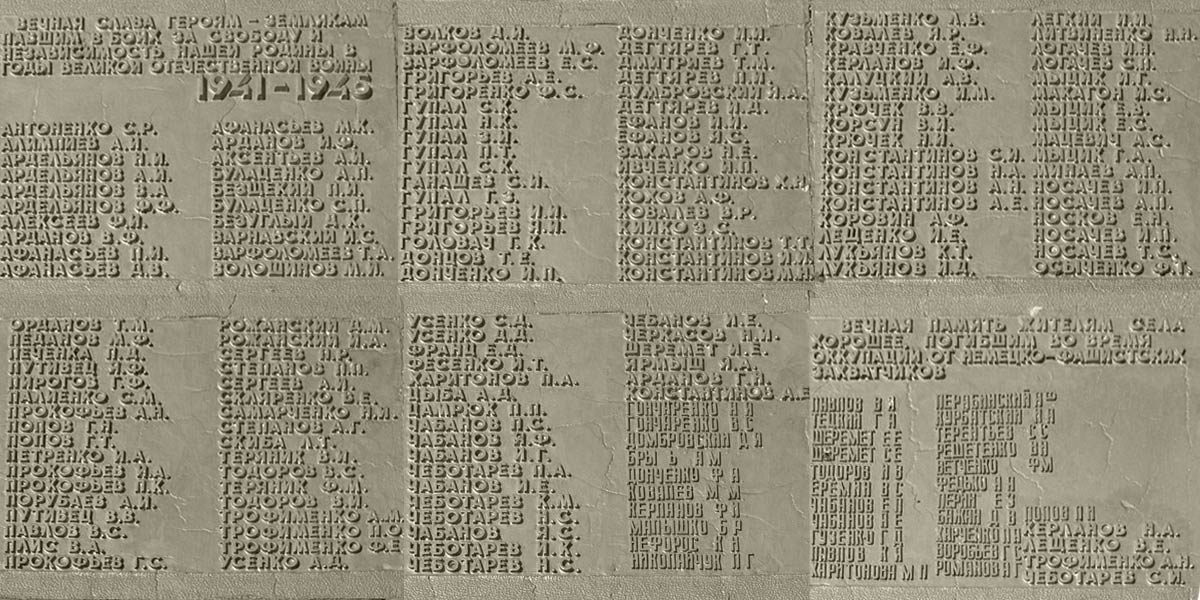 ВЕЧНАЯ СЛАВА ГЕРОЯМ – ЗЕМЛЯКАМ
ПАВШИМ В БОЯХ ЗА СВОБОДУ И
НЕЗАВИСИМОСТЬ НАШЕЙ РОДИНЫ В
ГОДЫ ВЕЛИКОЙ ОТЕЧЕСТВЕННОЙ ВОЙНЫ
1941–1945
АНТОНЕНКО С.Р.
АЛИМПИЕВ А.Й.
АРДЕЛЬЯНОВ Н.И.
АРДЕЛЬЯНОВ А.И.
АРДЕЛЬЯНОВ В.А
АРДЕЛЬЯНОВ Ф.Ф.
АЛЕКСЕЕВ Ф.И.
АРДАНОВ В.Ф.
АФАНАСЬЕВ П.И.
АФАНАСЬЕВ Д.В.
АФАНАСЬЕВ М.К.
АРДАНОВ И.Ф.
АКСЕНТЬЕВ А.И.
БУЛАЦЕНКО А.П.
БЕЗЩЕКИЙ П.И.
БУЛАЦЕНКО С.П.
БЕЗУГЛЫЙ Д.Х.
ВАРНАВСКИЙ И.С.
ВАРФОЛОМЕЕВ Т.А.
ВОЛОШИНОВ М.И.
ВОЛКОВ Д.И.
ВАРФОЛОМЕЕВ М.Ф.
ВАРФОЛОМЕЕВ Е.С.
ГРИГОРЬЕВ А.Е.
ГРИГОРЕНКО Ф.С.
ГУПАЛ С.К.
ГУПАЛ Н.К.
ГУПАЛ З.И.
ГУПАЛ П.Т.
ГУПАЛ С.К.
ГАНАЩЕВ С.И.
ГУПАЛ Г.З.
ГРИГОРЬЕВ И.И.
ГРИГОРЬЕВ И.Ю.
ГОЛОВАЧ Г.К.
ДОНЦОВ Т.Е.
ДОНЧЕНКО И.П.
ДОНЧЕНКО И.И.
ДЕГТЯРЕВ Г.Т.
ДМИТРИЕВ Т.М.
ДЕГТЯРЕВ П.И.
ДУМБРОВСКИЙ Н.А.
ДЕГТЯРЕВ И.Д.
ЕФАНОВ И.И.
ЕФАНОВ Я.С.
ЗАХАРОВ Н.Е.
ИВЧЕНКО И.П.
КОНСТАНТИНОВ Х.Н.
КОХОВ А.Ф.
КОВАЛЕВ В.Р.
КИЙКО З.С.
КОНСТАНТИНОВ Т.Т.
КОНСТАНТИНОВ И.И.
КОНСТАНТИНОВ М.Н.
КУЗЬМЕНКО А.В.
КОВАЛЕВ Я.Р.
КРАВЧЕНКО Е.Ф.
КЕРЛАНОВ И.Ф.
КАЛУЦКИЙ А.В.
КУЗЬМЕНКО И.М.
КРЮЧЕК В.Й.
КОРСУН В.И.
КРЮЧЕК Н.И.
КОНСТАНТИНОВ С.И.
КОНСТАНТИНОВ Н.А.
КОНСТАНТИНОВ А.Н.
КОНСТАНТИНОВ А.Е.
КОРОВИН А.Ф.
ЛЕЩЕНКО И.Е.
ЛУКЬЯНОВ К.Т.
ЛУКЬЯНОВ И.Д.
ЛЕГКИЙ И.И.
ЛИТВИНЕНКО Н.Н.
ЛОГАЧЕВ И.Н.
ЛОГАЧЕВ С.П.
МЫЦИК И.Г.
МАКАГОН И.С.
МЫЦИК Е.В.
МЫЦИК Е.С.
МАЦЕВИЧ А.С.
МЫЦИК Г.А.
МИНАЕВ А.П.
НОСАЧЕВ И.П.
НОСАЧЕВ А.П.
НОСКОВ Е.Н.
НОСАЧЕВ И.П.
НОСАЧЕВ Т.С.
ОСЫЧЕНКО Ф.Т.
ОРДАНОВ Т.М.
ПЕДАНОВ М.Ф.
ПЕЧЕНКА П.Д.
ПУТИВЕЦ Я.Ф.
ПИРОГОВ Г.Ф.
ПАЛИЕНКО С.М.
ПРОКОФЬЕВ А.Н.
ПОПОВ Г.Н.
ПОПОВ Г.Т.
ПЕТРЕНКО И.А.
ПРОКОФЬЕВ И.А.
ПРОКОФЬЕВ П.К.
ПОРУБАЕВ А.И.
ПУТИВЕЦ В.В.
ПАВЛОВ В.С.
ПЛИС В.А.
ПРОКОФЬЕВ Г.С.
РОЖАНСКИЙ Д.М.
РОЖАНСКИЙ И.А.
СЕРГЕЕВ П.Р.
СТЕПАНОВ П.П.
СЕРГЕЕВ А.И.
СКЛЯРЕНКО В.Е.
САМАРЧЕНКО Н.И.
СТЕПАНОВ А.Г.
СКИБА Л.Т.
ТЕРЯНИК В.И.
ТОДОРОВ В.С.
ТЕРЯНИК Ф.М.
ТОДОРОВ В.И.
ТРОФИМЕНКО А.М.
ТРОФИМЕНКО П.О
ТРОФИМЕНКО Ф.Е
УСЕНКО А.Д.
УСЕНКО С.Д.
УСЕНКО Д.Д.
ФРАНЦ Е.Д.
ФЕСЕНКО И.Т.
ХАРИТОНОВ П.А.
ЦЫБА А.Д.
ЦАМРЮК П.П.
ЧАБАНОВ П.С.
ЧАБАНОВ Я.Ф.
ЧАБАНОВ И.Г.
ЧЕБОТАРЕВ П.А.
ЧАБАНОВ И.Е.
ЧЕБОТАРЕВ К.М.
ЧЕБОТАРЕВ Я.С.
ЧАБАНОВ Н.С.
ЧЕБОТАРЕВ И.К.
ЧЕБОТАРЕВ Н.С.
ЧЕБАНОВ И.Е.
ЧЕРКАСОВ Н.И.
ШЕРЕМЕТ И.Е.
ЯРМЫШ И.А.
АРДАНОВ Г.Н.
КОНСТАНТИНОВ А.Е
ГОНЧАРЕНКО Н Я
ГОНЧАРЕНКО В С
ДОМБРОВСКИЙ Д Я
А М
ДОНЧЕНКО Ф А
КОВАЛЕВ М М
КЕРЛАНОВ Ф И
МАЛЫШКО Б Р
НЕФОРОС К Н
НИКОЛАЙЧУК П Г
ВЕЧНАЯ ПАМЯТЬ ЖИТЕЛЯМ СЕЛА
ХОРОШЕЕ, ПОГИБШИМ ВО ВРЕМЯ
ОККУПАЦИИ ОТ НЕМЕЦКО–ФАШИСТСКИХ
ЗАХВАТЧИКОВ
ПАВЛОВ В Я
ТЕЦКИЙ Г Я
ШЕРЕМЕТ Е Е
ШЕРЕМЕТ С Е
ТОДОРОВ И В
ЕРЕМИН В С
ЧАБАНОВ В Н
ЧАБАНОВ Я Е
ГУЗЕНКО Г Д
ПАВЛОВ К Я
ХАРИТОНОВА М П
КУРБАТСКИЙ И А
ТЕРЕНТЬЕВ С С
РЕШЕТЕНКО В Я
ВЕТЧЕНКО Ф М
ФЕДЬКО А Н
БАЖАН Д В
ХАРЧЕНКО П А
ВОРОБЬЕВ Г С
РОМАНОВ Н Г
ПОПОВ П Н
КЕРЛАНОВ Н.А.
ЛЕЩЕНКО В.Е.
ТРОФИМЕНКО А.Н.
ЧЕБОТАРЕВ С.И.